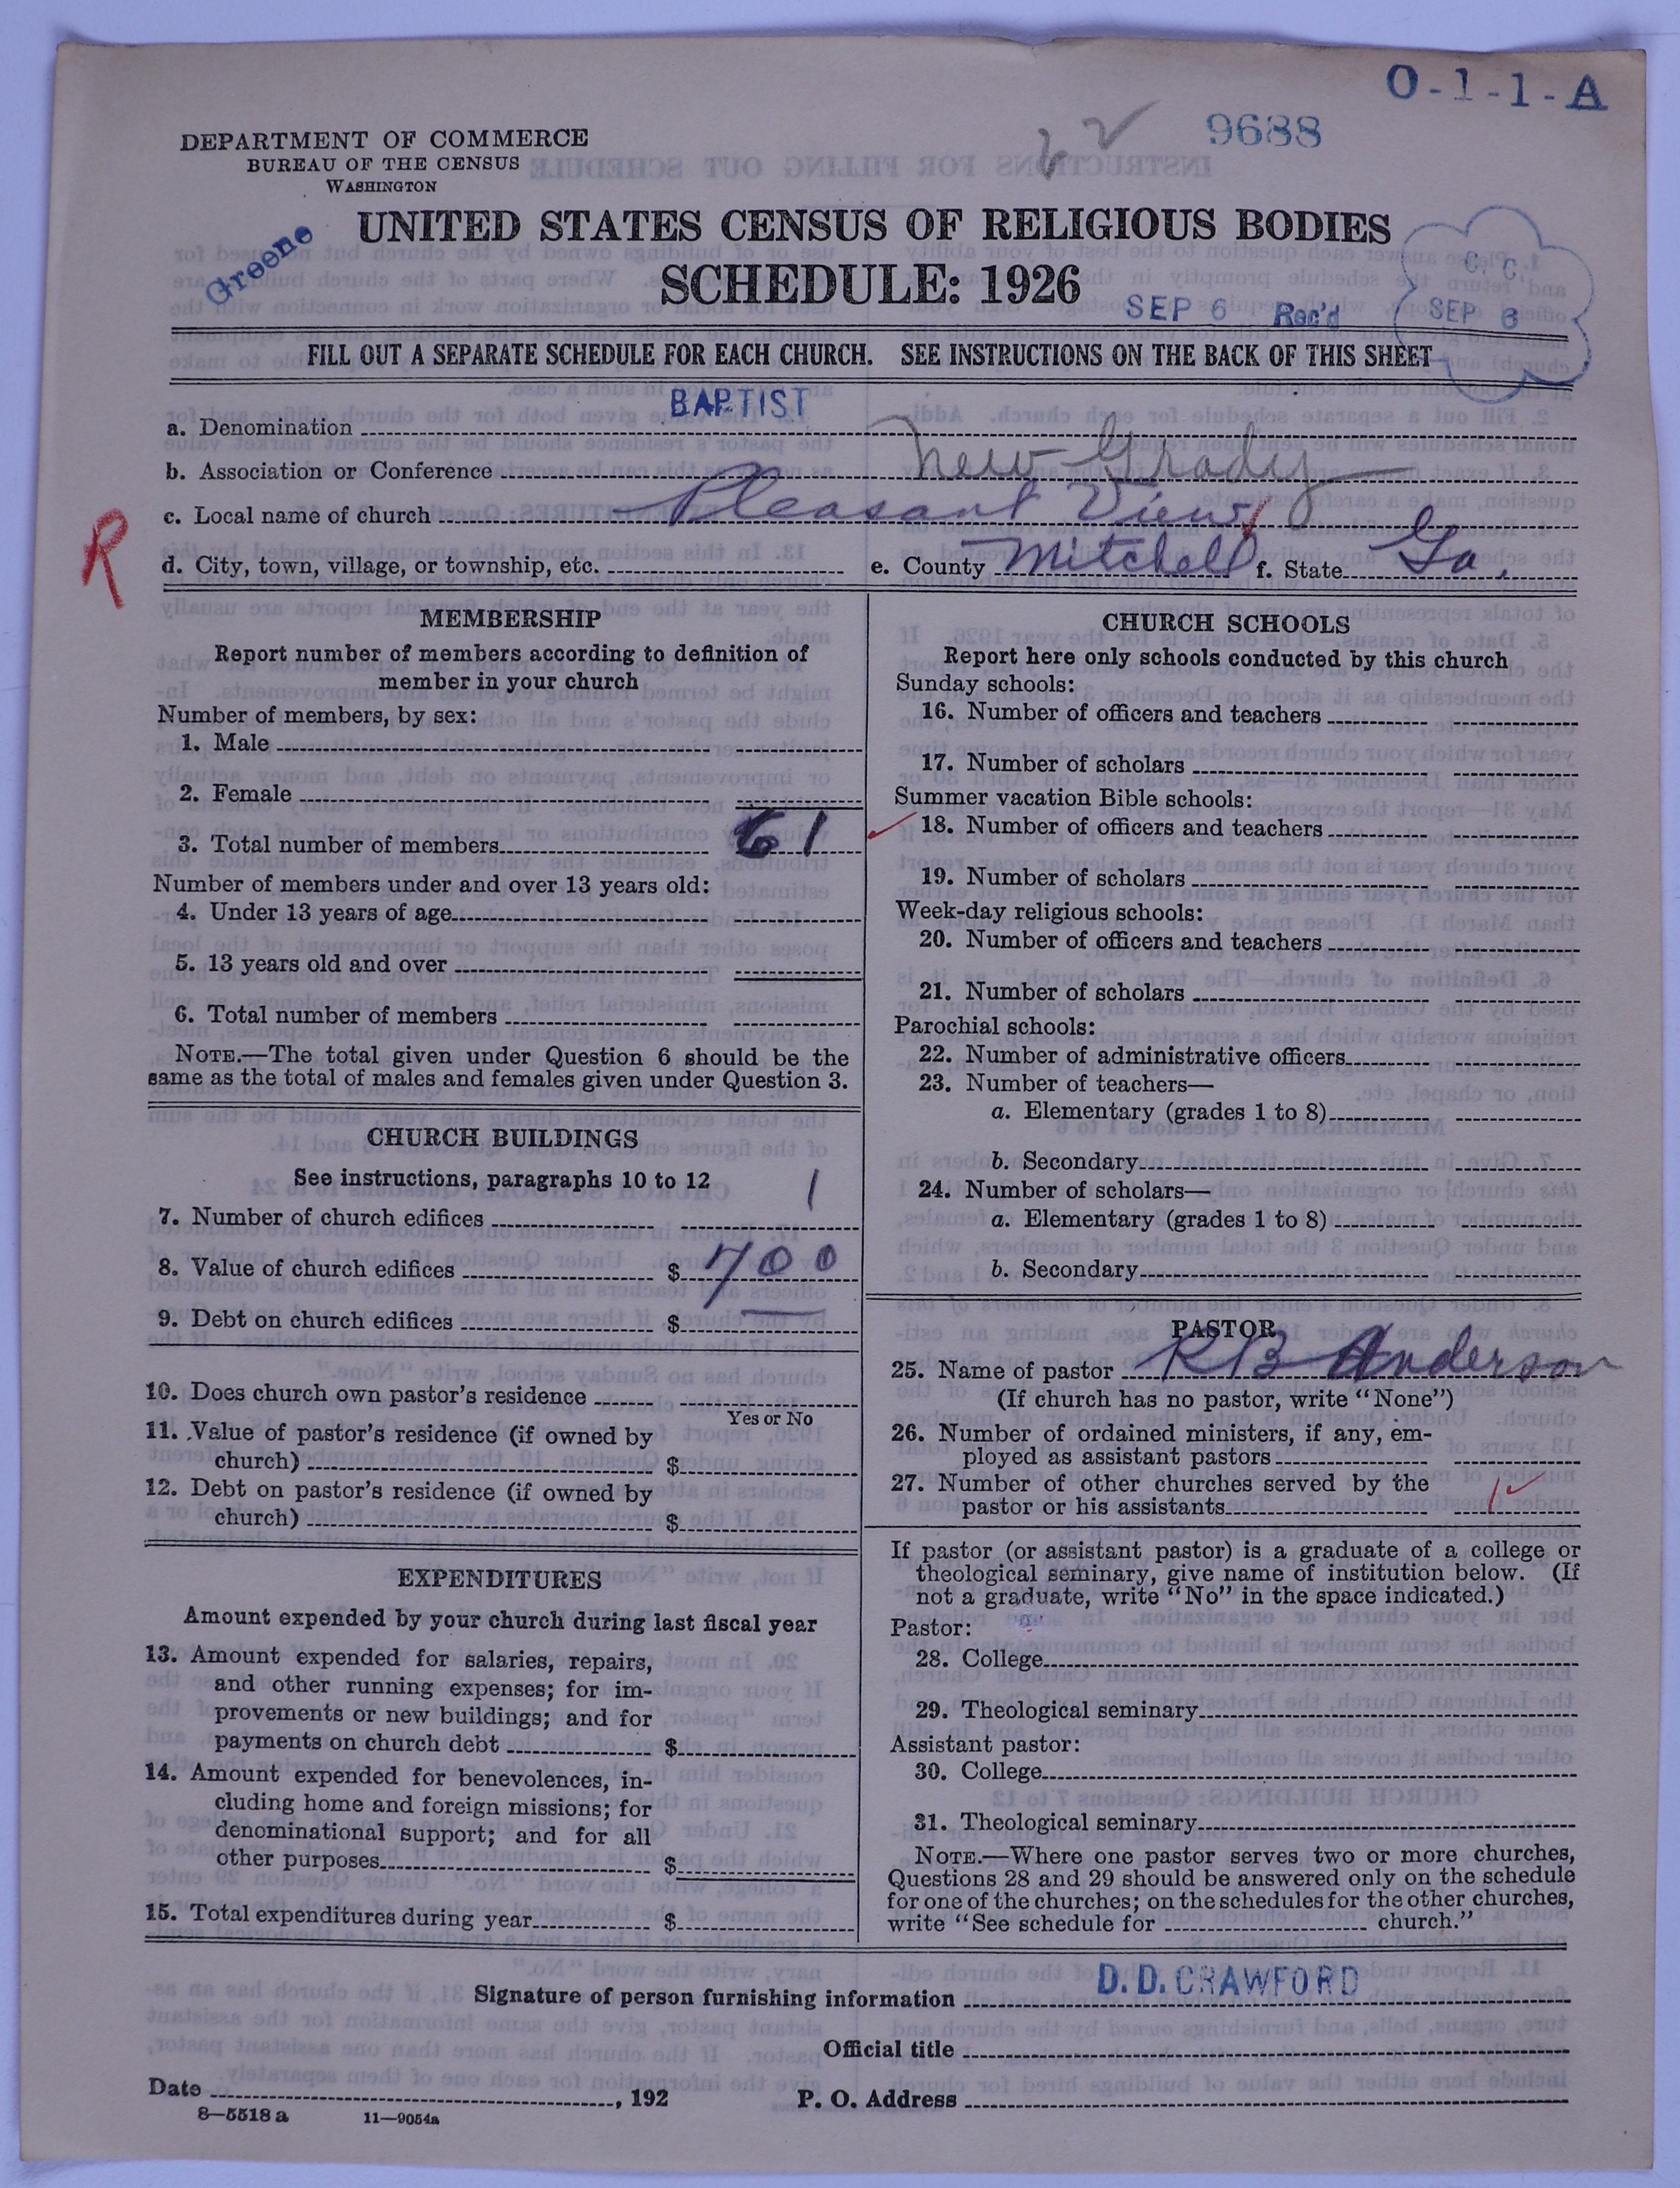 O-1-1-A
9688
DEPARTMENT OF COMMERCE
BUREAU OF THE CENSUS
WASHINGTON
Greene
UNITED STATES CENSUS OF RELIGIOUS BODIES
SCHEDULE: 1926
SEP 6 Rec'd
C. C.
SEP 6
FILL OUT A SEPARATE SCHEDULE FOR EACH CHURCH. SEE INSTRUCTIONS ON THE BACK OF THIS SHEET
a. Denomination BAPTIST
b. Association or Conference New Grady
c. Local name of church Pleasant View
R
d. City, town, village, or township, etc. e. County Mitchell f. State Ga.
MEMBERSHIP
Report number of members according to definition of
member in your church
Number of members, by sex:
1. Male
2. Female
3. Total number of members 61
Number of members under and over 13 years old:
4. Under 13 years of age
5. 13 years old and over
6. Total number of members
NOTE.—The total given under Question 6 should be the
same as the total of males and females given under Question 3.
CHURCH BUILDINGS
See instructions, paragraphs 10 to 12
7. Number of church edifices 1
8. Value of church edifices $ 700
9. Debt on church edifices $
10. Does church own pastor's residence
Yes or No
11. Value of pastor's residence (if owned by
church) $
12. Debt on pastor's residence (if owned by
church) $
EXPENDITURES
Amount expended by your church during last fiscal year
13. Amount expended for salaries, repairs,
and other running expenses; for im-
provements or new buildings; and for
payments on church debt $
14. Amount expended for benevolences, in-
cluding home and foreign missions; for
denominational support; and for all
other purposes $
15. Total expenditures during year $
CHURCH SCHOOLS
Report here only schools conducted by this church
Sunday schools:
16. Number of officers and teachers
17. Number of scholars
Summer vacation Bible schools:
18. Number of officers and teachers
19. Number of scholars
Week-day religious schools:
20. Number of officers and teachers
21. Number of scholars
Parochial schools:
22. Number of administrative officers
23. Number of teachers—
a. Elementary (grades 1 to 8)
b. Secondary
24. Number of scholars—
a. Elementary (grades 1 to 8)
b. Secondary
PASTOR
25. Name of pastor R B Anderson
(If church has no pastor, write "None")
26. Number of ordained ministers, if any, em-
ployed as assistant pastors
27. Number of other churches served by the
pastor or his assistants 1
If pastor (or assistant pastor) is a graduate of a college or
theological seminary, give name of institution below. (If
not a graduate, write "No" in the space indicated.)
Pastor:
28. College
29. Theological seminary
Assistant pastor:
30. College
31. Theological seminary
NOTE.—Where one pastor serves two or more churches,
Questions 28 and 29 should be answered only on the schedule
for one of the churches; on the schedules for the other churches,
write "See schedule for church."
Signature of person furnishing information D. D. CRAWFORD
Official title
Date , 192 P. O. Address
8—5518 a 11—9054a